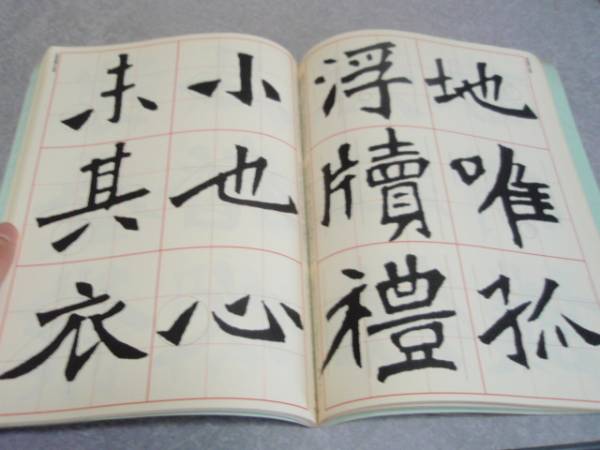 地唯孤
浮牘禮
小也心
未其衣